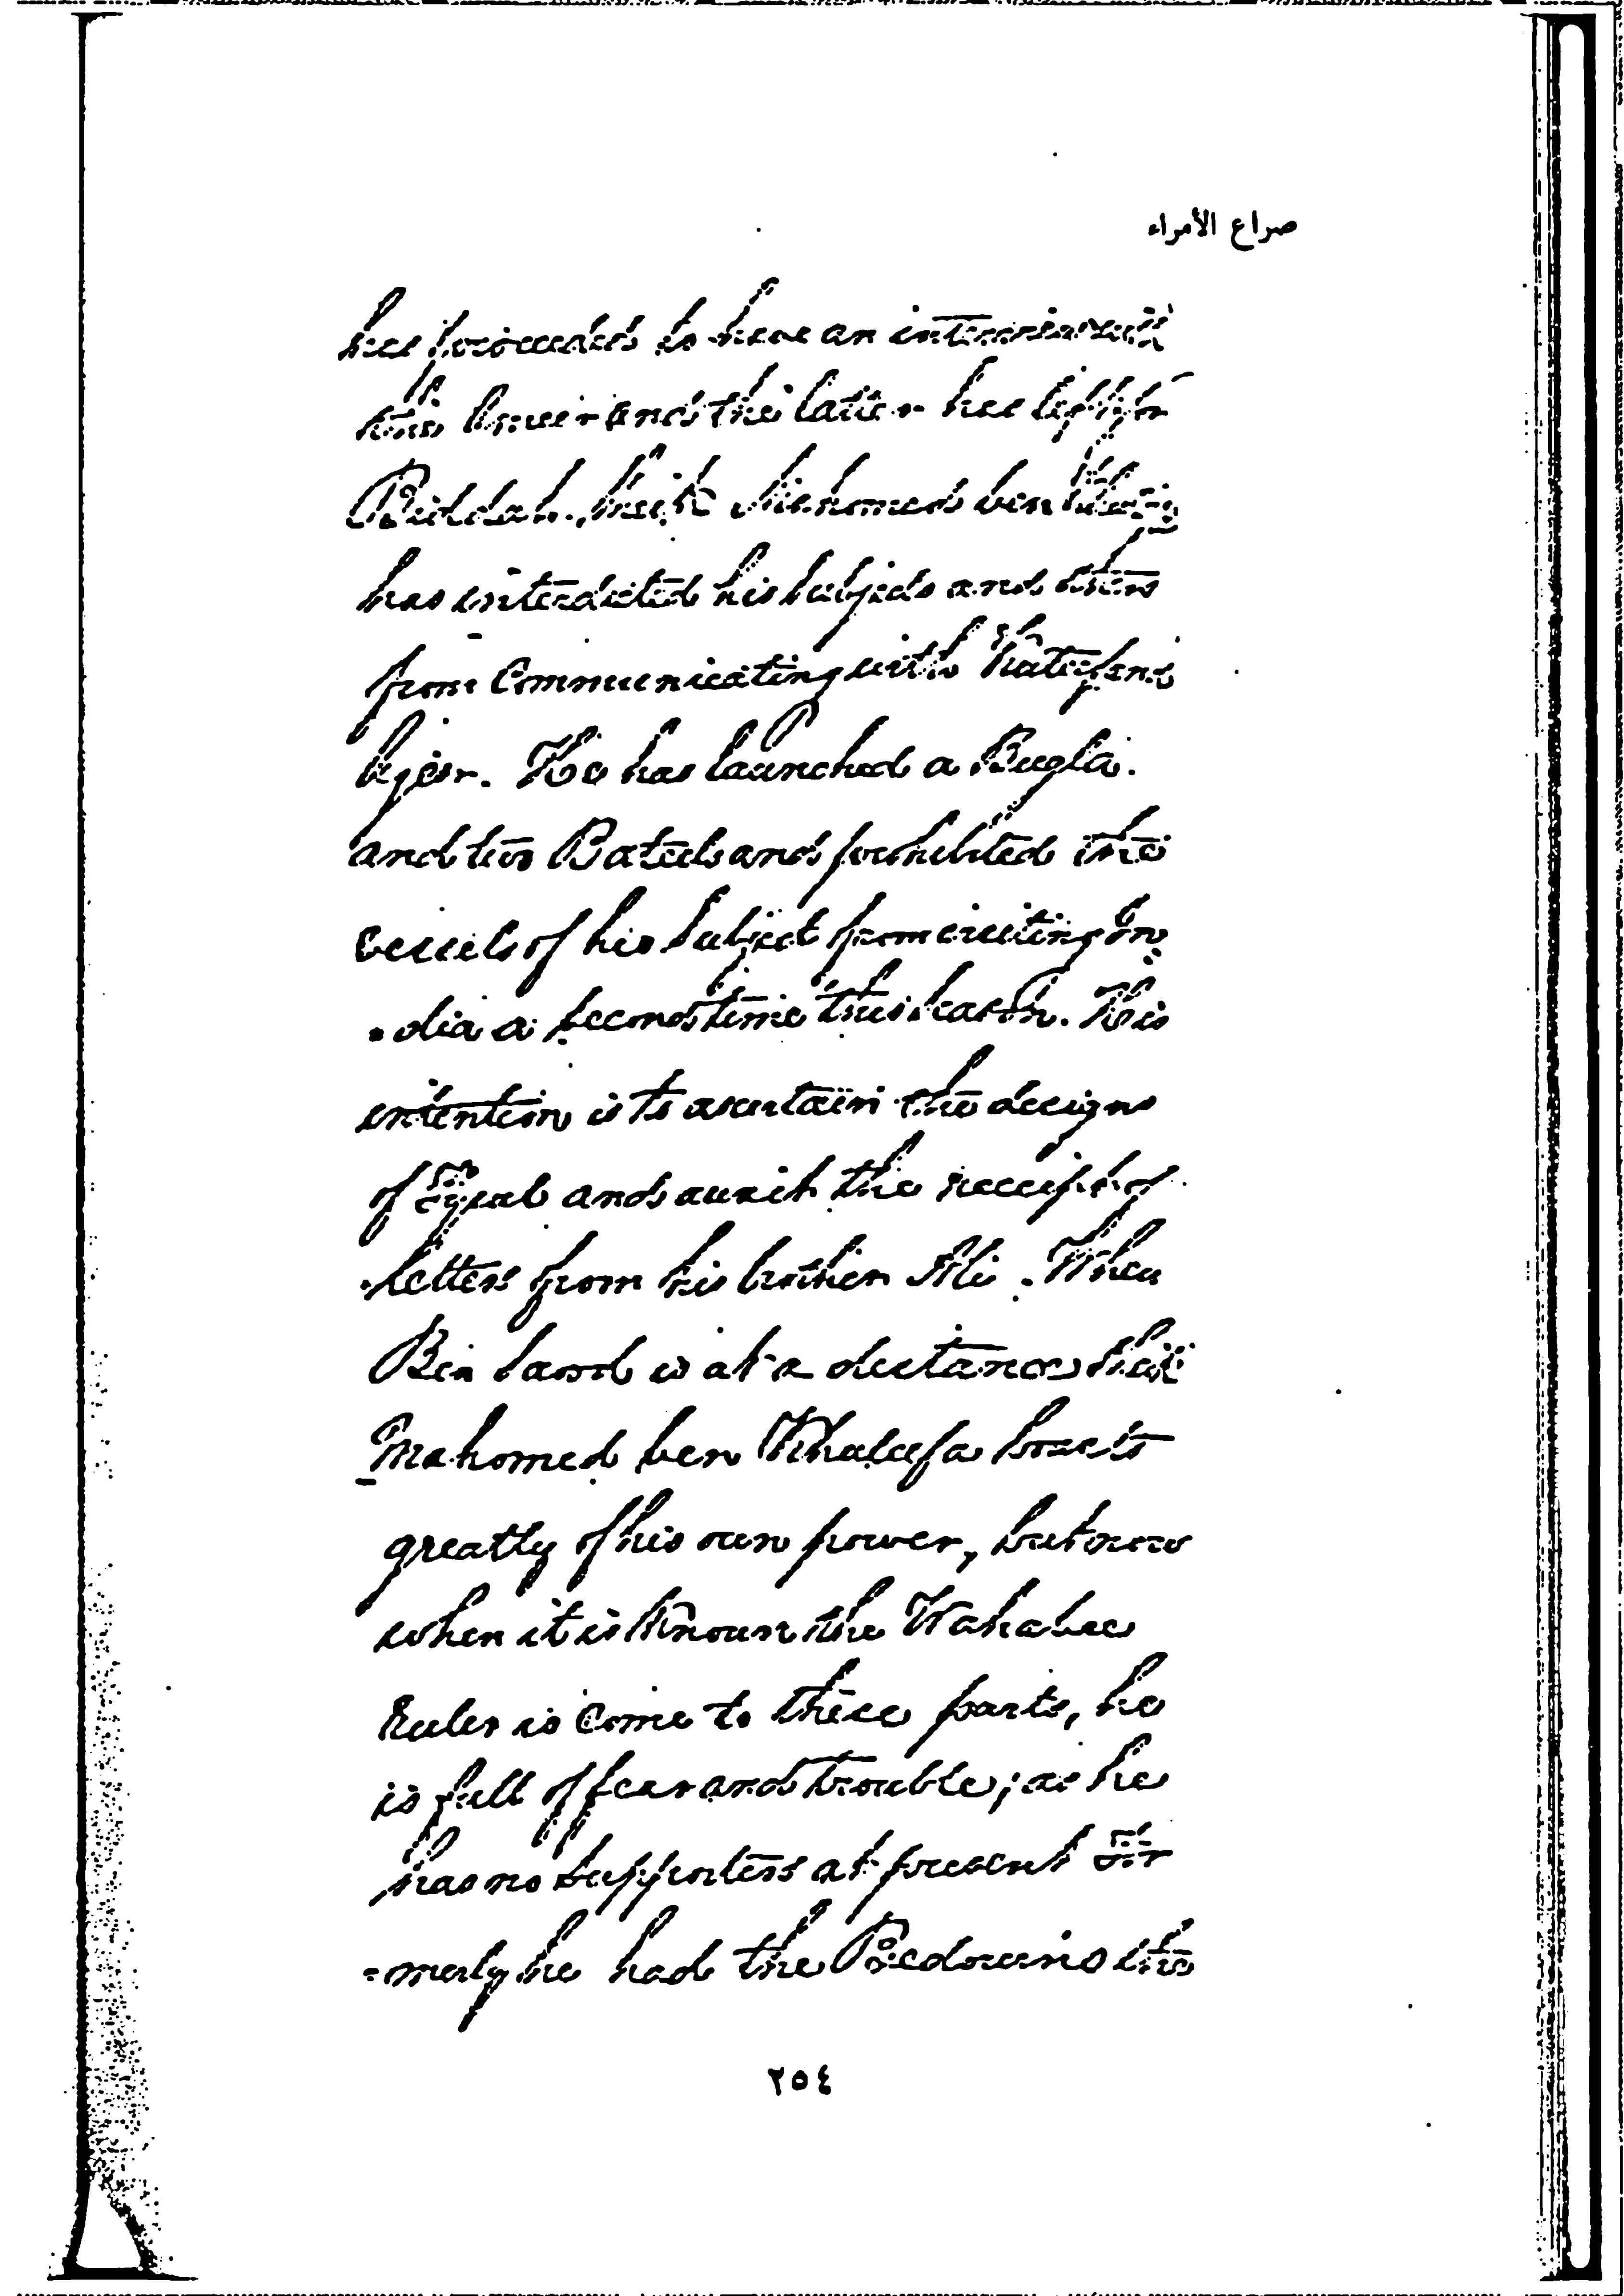 صراع الأمراء
has proceeded to have an interview with
this Ameer and the latter has left for
Riddah. Sheik Mahomed ben
has interdicted his subjects and others
from Communicating with Kateef and
Ujeer. He has launched a Bugla.
and two Bateels and prohibited the
vessels of his Subject from visiting In
-dia a second time this season. His
intention is to ascertain the designs
of and await the receipt of
letters from his brother Ali. When
Bin Saood is at a distance Sheik
Mahomed ben Khaleefa boasts
greatly of his own power, but now
when it is Known the Wahabee
Ruler is Come to these parts, he
is full of fear and trouble; as he
has no supporters at present for
-merly he had the Bedouins the
٢٥٤